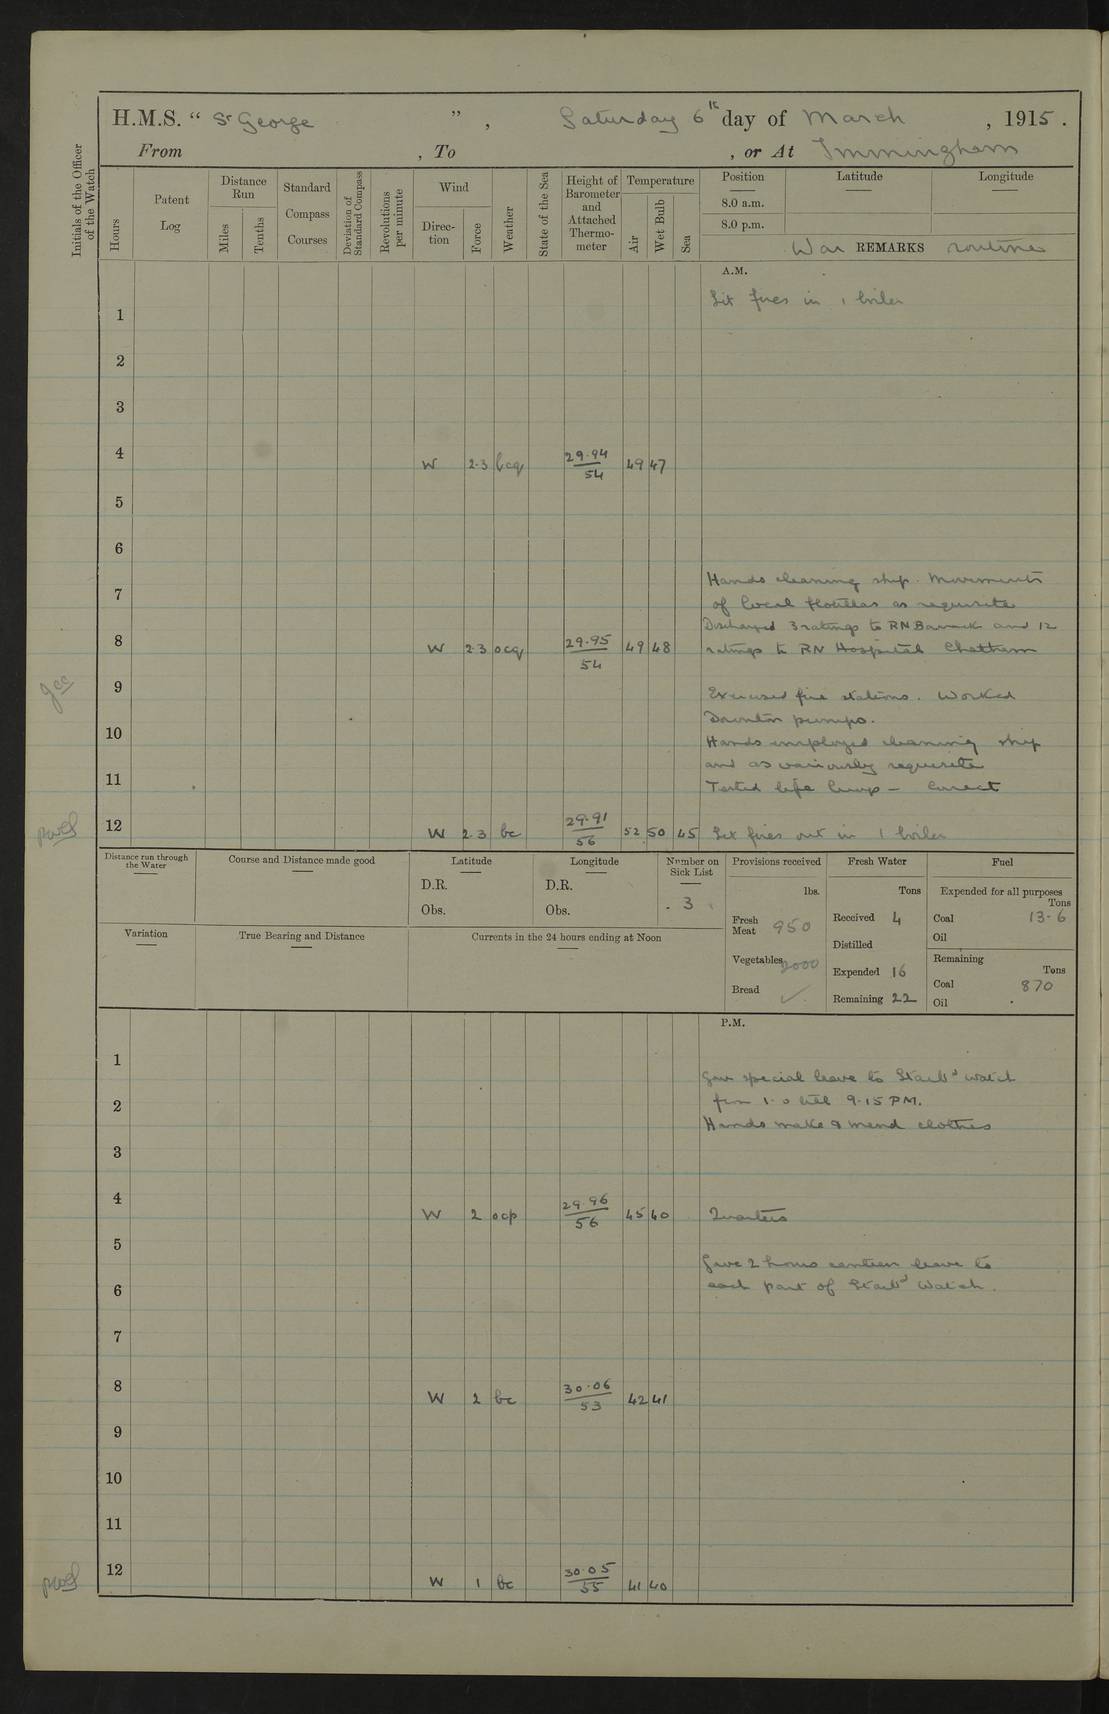 H.M.S. “ St George ” , Saturday 6th day of March , 1915 .
From , To , or At Immingham
Initials of the Officer of the Watch
Hours
Patent Log
Distance Run
Miles
Tenths
Standard Compass Courses
Deviation of Standard Compass
Revolutions per minute
Wind
Direction
Force
Weather
State of the Sea
Height of Barometer and Attached Thermometer
Temperature
Air
Wet Bulb
Sea
Position Latitude Longitude
8.0 a.m.
8.0 p.m.
War REMARKS routine
A.M.
Lit fires in 1 boiler
1
2
3
4 W 2·3 bcq 29·94 / 54 49 47
5
6
Hands cleaning ship. Movements
7
of local flotillas as requisite
Discharged 3 ratings to RN Barrack and 12
8 W 2·3 ocq 29·95 / 54 49 48 ratings to RN Hospital Chatham
9 Exercised fire stations. Worked
Downton pumps.
10 Hands employed cleaning ship
and as variously requisite
11 Tested life buoys – Correct
12 W 2·3 bc 29·91 / 56 52 50 45 Let fires out in 1 boiler
Distance run through the Water
Course and Distance made good
Latitude
D.R.
Obs.
Longitude
D.R.
Obs.
Number on Sick List
3
Provisions received
lbs.
Fresh Meat 950
Vegetables 2000
Bread ✓
Fresh Water
Tons
Received 4
Distilled
Expended 16
Remaining 22
Fuel
Expended for all purposes
Tons
Coal 13·6
Oil
Remaining
Tons
Coal 870
Oil
Variation
True Bearing and Distance
Currents in the 24 hours ending at Noon
P.M.
1
Gave special leave to Starbd watch
2 from 1·0 till 9·15 PM.
Hands make & mend clothes
3
4 W 2 ocp 29·96 / 56 45 40 Quarters
5
Gave 2 hours canteen leave to
6 each part of Starbd Watch.
7
8 W 2 bc 30·06 / 53 42 41
9
10
11
12 W 1 bc 30·05 / 55 41 40